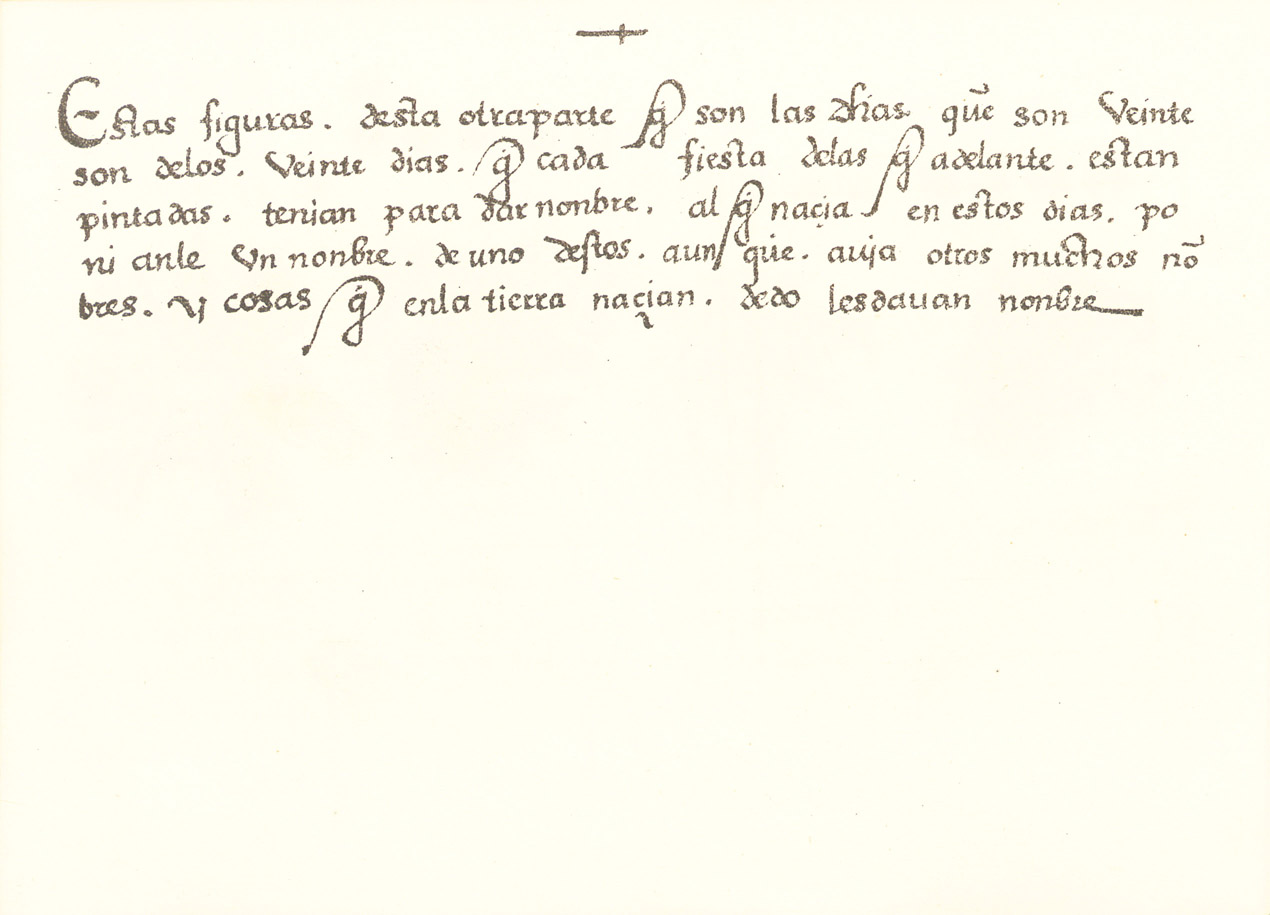 Estas figuras. desta otra parte q̃ son las dh̃as. quẽ son Veinte
son delos. Veinte dias. q̃ cada fiesta delas q̃ adelante. estan
pintadas. tenian para dar nonbre. al q̃ naçia en estos dias. po
ni anle Vn nonbre. de uno destos. aun que. auja otros muchos nõ
bres. y cosas q̃ enla tierra naçian. dedo lesdauan nonbre